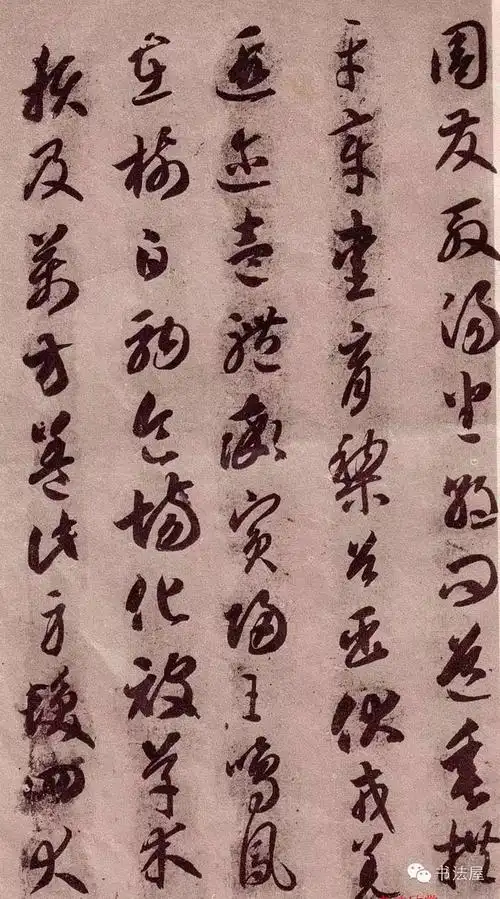 周發殷湯坐朝問道垂拱
平章愛育黎首臣伏戎羌
遐邇壹體率賓歸王鳴鳳
在樹白駒食場化被草木
賴及萬方蓋此身髮四大
书法屋